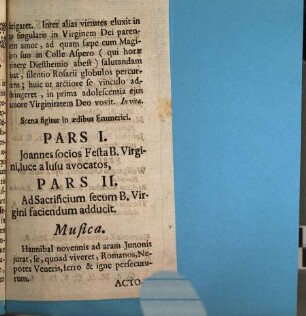 irrigaret. Inter alias virtutes eluxit in
singularis in Virginem Dei paren-
amor, ad quam sæpe cum Magi-
suo in Colle Aspero ( qui horæ
Diesthemio abest ) salutandam
silentio Rosarii globulos percur-
huic ut arctiore se vinculo ad-
stringeret, in prima adolescentia ejus
amore Virginitatem Deo vovit. In vita.
Scena figitur in ædibus Emmerici.
PARS I.
Joannes socios Festa B. Virgi-
ni, luce a lusu avocatos,
PARS II.
Ad Sacrificium secum B, Vir-
gini faciendum adducit.
Musica.
Hannibal novennis ad aram Junonis
jurat, se, quoad viveret, Romanos, Ne-
potes Veneris, ferro & igne persecutu-
rum.
ACTO